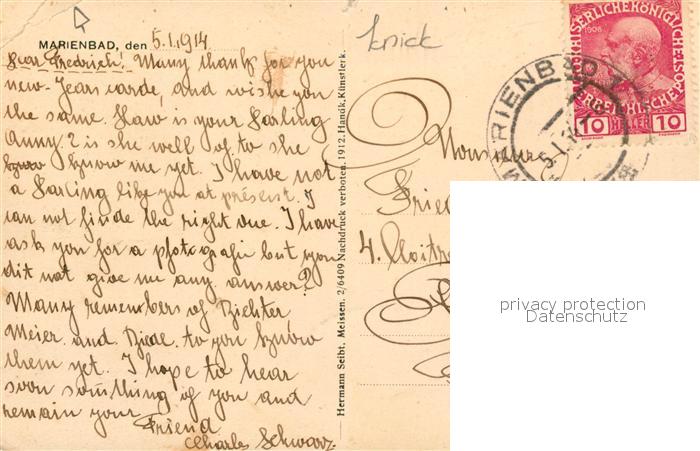 MARIENBAD, den 5.I.1914
Dear Fredrich! Many thank for you
new-Jears carde, and wishe you
the same. Haw is your Darling
Anny? is she well of to she
know me yet. I have not
a Darling like you at présent. I
can not finde the right one. I have
ask you for a pfotografie but you
dit not give me any answer?
Many remembers of Richter,
Meier and Riede. to you know
them yet. I hope to hear
soon something of you and
remain your
Friend
Charles Schwarz
Hermann Seibt, Meissen. 2/6409 Nachdruck verboten. 1912. Handk, Künstlerk.
knick
1908
10 HELLER 10
MARIENBAD
5.I.
Monsieur
Fried
4.
privacy protection
Datenschutz